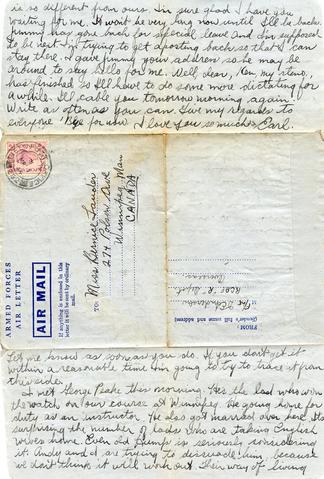 is so different from ours. I'm sure good I have you
waiting for me. It wont be very long now until I'll be back.
Jimmy has gone back for special leave and I'm supposed
to be next. I'm trying to get a posting back so that I can
stay there. I gave Jimmy your address so he may be
around to say hello for me. Well dear, Ken my steno,
has finished so I'll have to do some more dictating for
a while. I'll cable you tomorrow morning again
Write as often as you can. Give my regards to
everyone 'Bye for now I love you so much Earl.
ARMED FORCES
AIR LETTER
AIR MAIL
If anything is enclosed in this
letter it will be sent by ordinary
mail.
TO:
Miss Bernice Lauder
274 Polson Ave
Winnipeg Man
CANADA
FROM
(Sender's full name and address)
Overseas
Let me know as soon as you do. If you don't get it
within a reasonable time I'm going to try to trace it from
this side.
I met George Peake this morning. He's the lad who won
the watch on our course at Winnipeg. He's going home for
duty as an instructor. He also got married over here. It's
surprising the number of lads who are taking English
wives home. Even old Bump is seriously considering
it. Andy and I are trying to dissuade him, because
we don't think it will work out. Their way of living